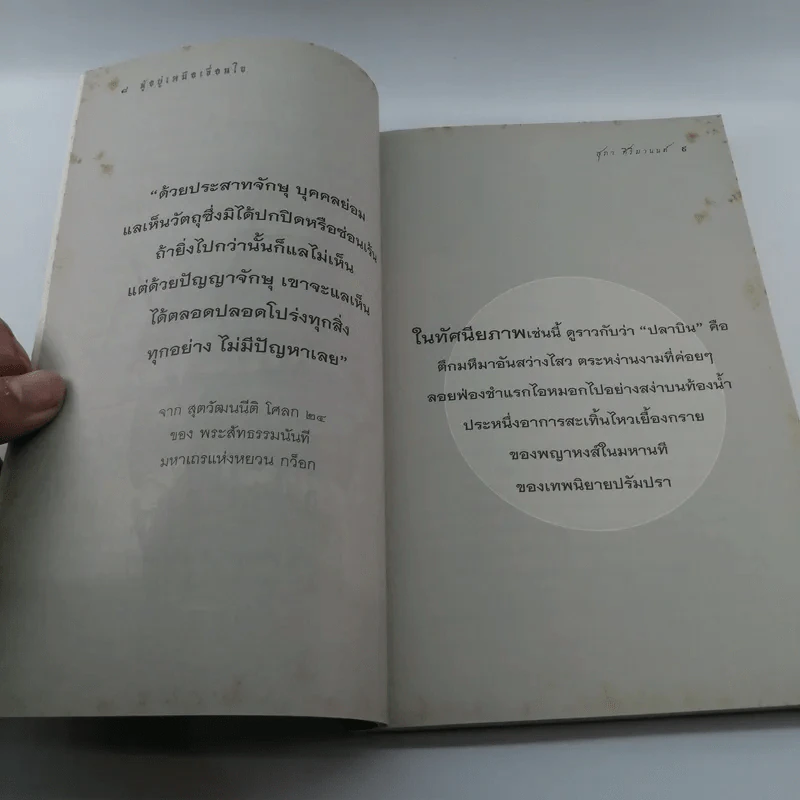 ๘ ผู้อยู่เหนือเงื่อนไข
“ด้วยประสาทจักษุ บุคคลย่อม
แลเห็นวัตถุซึ่งมิได้ปกปิดหรือซ่อนเร้น
ถ้ายิ่งไปกว่านั้นก็แลไม่เห็น
แต่ด้วยปัญญาจักษุ เขาจะแลเห็น
ได้ตลอดปลอดโปร่งทุกสิ่ง
ทุกอย่าง ไม่มีปัญหาเลย”
จาก สุตวัฒนนีติ โศลก ๒๔
ของ พระสัทธรรมนันที
มหาเถรแห่งหยวน กว็อก
สุภา ศิริมานนท์ ๙
ในทัศนียภาพเช่นนี้ ดูราวกับว่า “ปลาบิน” คือ
ตึกมหึมาอันสว่างไสว ตระหง่านงามที่ค่อยๆ
ลอยฟ่องชำแรกไอหมอกไปอย่างสง่าบนท้องน้ำ
ประหนึ่งอาการสะเทิ้นไหวเยื้องกราย
ของพญาหงส์ในมหานที
ของเทพนิยายปรัมปรา